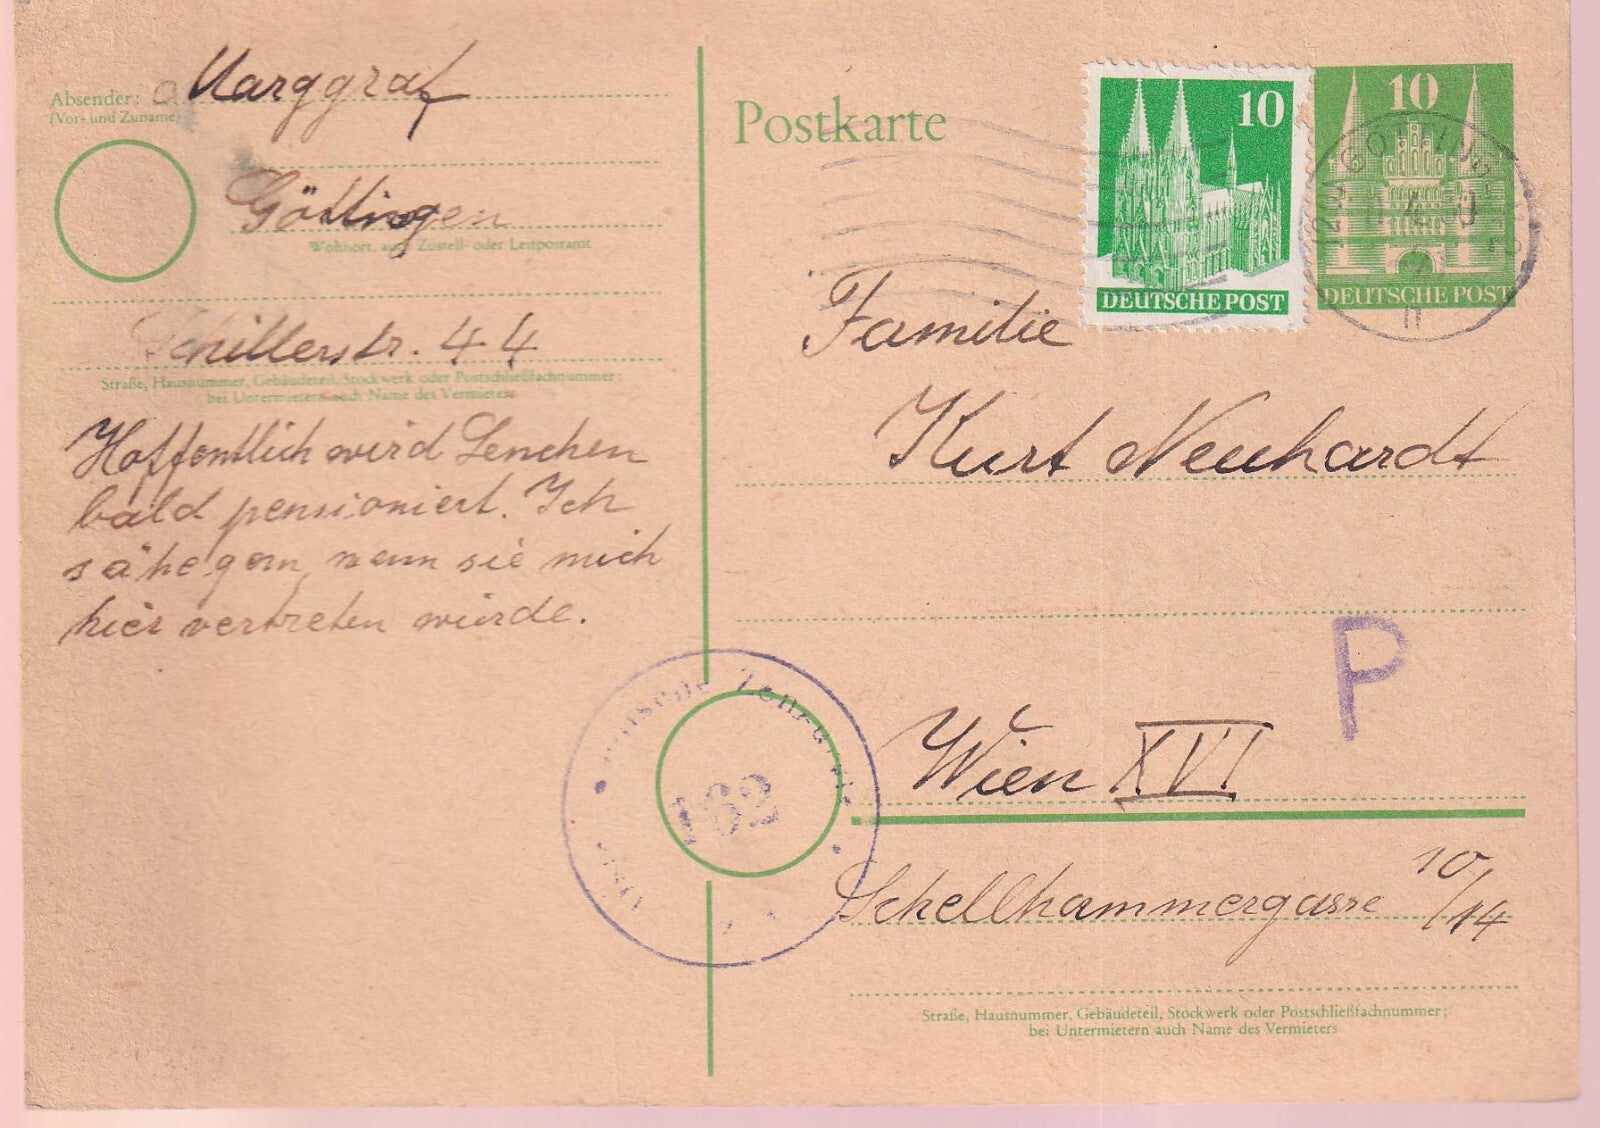 Absender:
(Vor- und Zuname)
Marggraf
Göttingen
Wohnort, auch Zustell- oder Leitpostamt
Schillerstr. 44
Straße, Hausnummer, Gebäudeteil, Stockwerk oder Postschließfachnummer;
bei Untermietern auch Name des Vermieters
Hoffentlich wird Lenchen
bald pensioniert. Ich
sähe gern, wenn sie mich
hier vertreten würde.
Postkarte
10
DEUTSCHE POST
10
DEUTSCHE POST
Familie
Kurt Neuhardt
P
Wien XVI
Schellhammergasse 10/14
Straße, Hausnummer, Gebäudeteil, Stockwerk oder Postschließfachnummer;
bei Untermietern auch Name des Vermieters
162